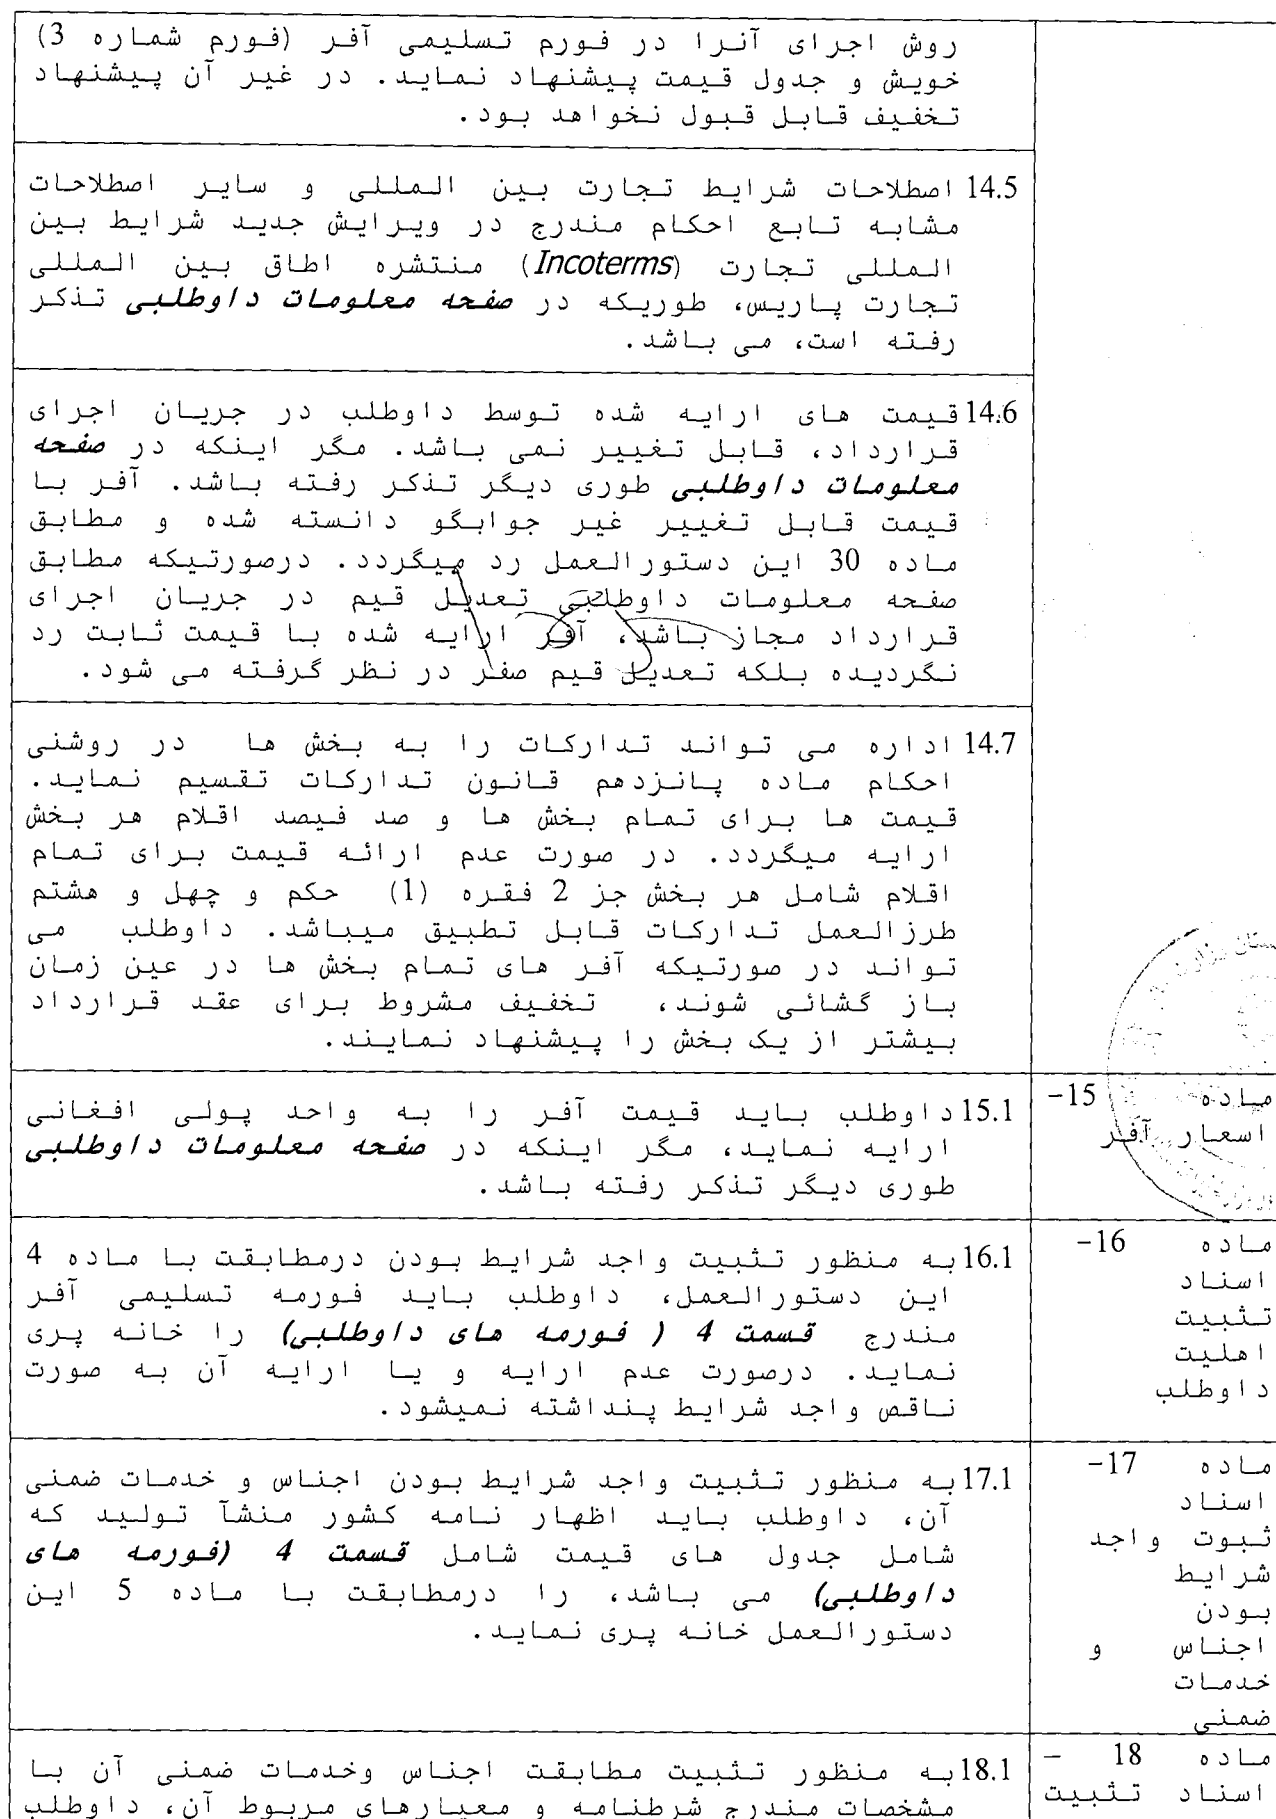 روش اجرای آنرا در فورم تسلیمی آفر (فورم شماره 3)
خویش و جدول قیمت پیشنهاد نماید. در غیر آن پیشنهاد
تخفیف قابل قبول نخواهد بود.
14.5 اصطلاحات شرایط تجارت بین المللی و سایر اصطلاحات
مشابه تابع احکام مندرج در ویرایش جدید شرایط بین
المللی تجارت (Incoterms) منتشره اطاق بین المللی
تجارت پاریس، طوریکه در صفحه معلومات داوطلبی تذکر
رفته است، می باشد.
14.6 قیمت های ارایه شده توسط داوطلب در جریان اجرای
قرارداد، قابل تغییر نمی باشد. مگر اینکه در صفحه
معلومات داوطلبی طوری دیگر تذکر رفته باشد. آفر با
قیمت قابل تغییر غیر جوابگو دانسته شده و مطابق
ماده 30 این دستورالعمل رد میگردد. درصورتیکه مطابق
صفحه معلومات داوطلبی تعدیل قیم در جریان اجرای
قرارداد مجاز باشد، آفر ارایه شده با قیمت ثابت رد
نگردیده بلکه تعدیل قیم صفر در نظر گرفته می شود.
14.7 اداره می تواند تدارکات را به بخش ها در روشنی
احکام ماده پانزدهم قانون تدارکات تقسیم نماید.
قیمت ها برای تمام بخش ها و صد فیصد اقلام هر بخش
ارایه میگردد. در صورت عدم ارائه قیمت برای تمام
اقلام شامل هر بخش جز 2 فقره (1) حکم و چهل و هشتم
طرزالعمل تدارکات قابل تطبیق میباشد. داوطلب می
تواند در صورتیکه آفر های تمام بخش ها در عین زمان
باز گشائی شوند، تخفیف مشروط برای عقد قرارداد
بیشتر از یک بخش را پیشنهاد نمایند.
ماده 15-
اسعار آفر
15.1 داوطلب باید قیمت آفر را به واحد پولی افغانی
ارایه نماید، مگر اینکه در صفحه معلومات داوطلبی
طوری دیگر تذکر رفته باشد.
ماده 16-
اسناد
تثبیت
اهلیت
داوطلب
16.1 به منظور تثبیت واجد شرایط بودن درمطابقت با ماده 4
این دستورالعمل، داوطلب باید فورمه تسلیمی آفر
مندرج قسمت 4 ( فورمه های داوطلبی) را خانه پری
نماید. درصورت عدم ارایه و یا ارایه آن به صورت
ناقص واجد شرایط پنداشته نمیشود.
ماده 17-
اسناد
ثبوت واجد
شرایط
بودن
اجناس و
خدمات
ضمنی
17.1 به منظور تثبیت واجد شرایط بودن اجناس و خدمات ضمنی
آن، داوطلب باید اظهار نامه کشور منشآ تولید که
شامل جدول های قیمت شامل قسمت 4 (فورمه های
داوطلبی) می باشد، را درمطابقت با ماده 5 این
دستورالعمل خانه پری نماید.
ماده 18 -
اسناد تثبیت
18.1 به منظور تثبیت مطابقت اجناس وخدمات ضمنی آن با
مشخصات مندرج شرطنامه و معیارهای مربوط آن، داوطلب